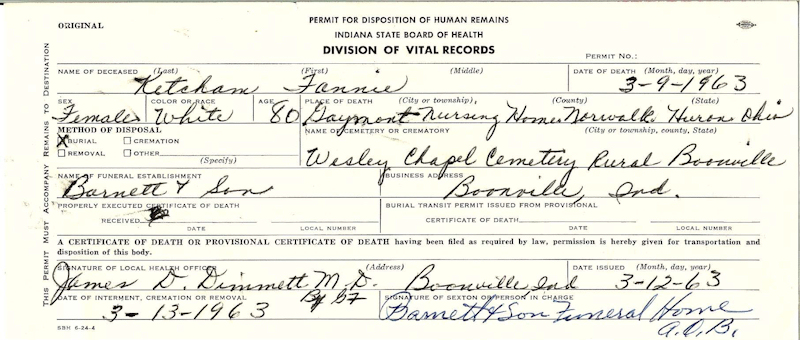 ORIGINAL
PERMIT FOR DISPOSITION OF HUMAN REMAINS
INDIANA STATE BOARD OF HEALTH
DIVISION OF VITAL RECORDS
PERMIT NO.:
THIS PERMIT MUST ACCOMPANY REMAINS TO DESTINATION
NAME OF DECEASED (Last) (First) (Middle) DATE OF DEATH (Month, day, year)
Ketcham Fannie 3-9-1963
SEX COLOR OR RACE AGE PLACE OF DEATH (City or township), (County) (State)
Female White 80 Gaymont Nursing Home Norwalk Huron Ohio
METHOD OF DISPOSAL NAME OF CEMETERY OR CREMATORY (City or township, county, State)
X BURIAL CREMATION
REMOVAL OTHER
(Specify)
Wesley Chapel Cemetery Rural Boonville
NAME OF FUNERAL ESTABLISHMENT BUSINESS ADDRESS
Barnett & Son Boonville, Ind.
PROPERLY EXECUTED CERTIFICATE OF DEATH BURIAL TRANSIT PERMIT ISSUED FROM PROVISIONAL
RECEIVED CERTIFICATE OF DEATH
DATE LOCAL NUMBER DATE LOCAL NUMBER
A CERTIFICATE OF DEATH OR PROVISIONAL CERTIFICATE OF DEATH having been filed as required by law, permission is hereby given for transportation and
disposition of this body.
SIGNATURE OF LOCAL HEALTH OFFICER (Address) DATE ISSUED (Month, day, year)
James D. Dimmett M.D. Boonville, Ind 3-12-63
By
DATE OF INTERMENT, CREMATION OR REMOVAL SIGNATURE OF SEXTON OR PERSON IN CHARGE
3-13-1963 Barnett & Son Funeral Home
A.O.B.
SBH 6-24-4